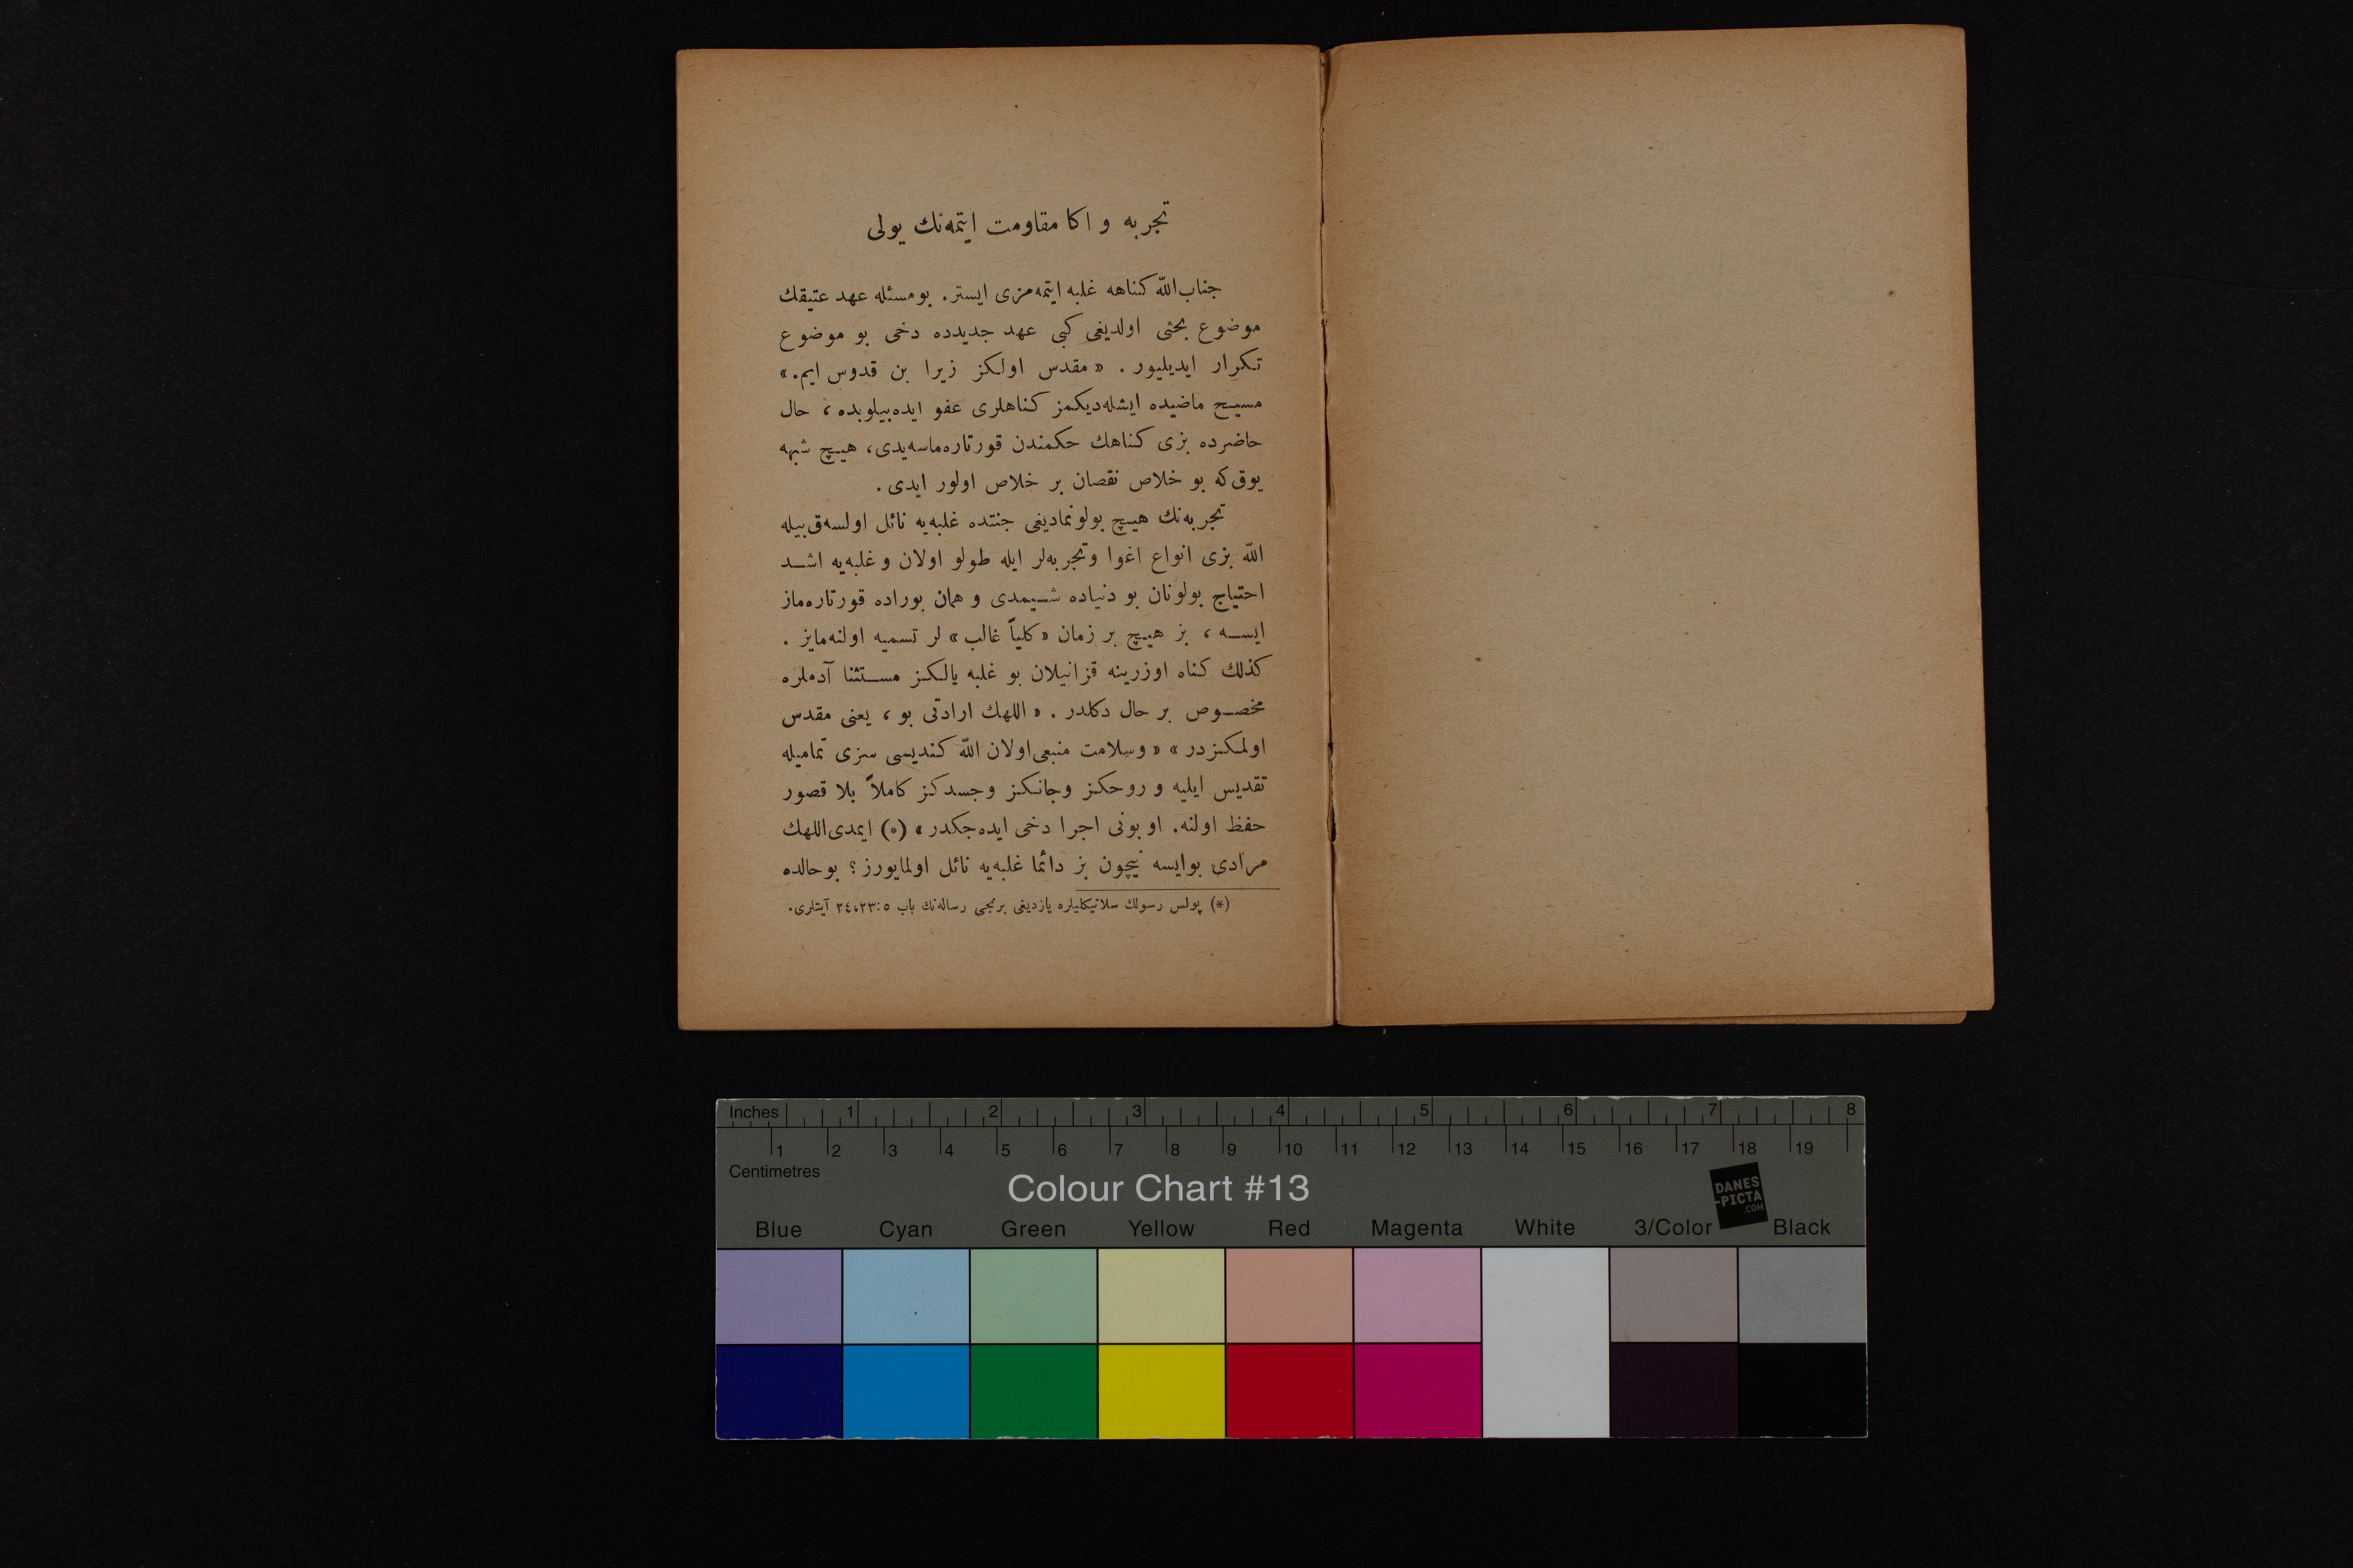 تجربه و اكا مقاومت ايتمه‌نك يولى
جناب‌اللّه كناهه غلبه ايتمه‌مزى ايستر. بومسئله عهد عتيقك
موضوع بحثى اولديغى كبى عهد جديدده دخى بو موضوع
تكرار ايديليور. «مقدس اولكز زيرا بن قدوس ايم.»
مسيح ماضيده ايشله‌ديكمز كناهلرى عفو ايده‌بيلوبده، حال
حاضرده بزى كناهك حكمندن قورتاره‌ماسه‌يدى، هيچ شبهه
يوق‌كه بو خلاص نقصان بر خلاص اولور ايدى.
تجربه‌نك هيچ بولونماديغى جنتده غلبه‌يه نائل اولسه‌ق‌بيله
اللّه بزى انواع اغوا وتجربه‌لر ايله طولو اولان وغلبه‌يه اشد
احتياج بولونان بو دنياده شيمدى و همان بوراده قورتاره‌ماز
ايسه، بز هيچ بر زمان «كلياً غالب» لر تسميه اولنه‌مايز.
كذلك كناه اوزرينه قزانيلان بو غلبه يالكز مستثنا آدملره
مخصوص بر حال دكلدر. «اللهك ارادتى بو، يعنى مقدس
اولمكزدر» «وسلامت منبعى‌اولان اللّه كنديسى سزى تماميله
تقديس ايليه و روحكز وجانكز وجسدكز كاملاً بلا قصور
حفظ اولنه. او بونى اجرا دخى ايده‌جكدر» (٥) ايمدى‌اللهك
مرادى بوايسه نيچون بز دائما غلبه‌يه نائل اولمايورز؟ بوحالده
(*) پولس رسولك سلانيكليلره يازديغى برنجى رساله‌نك باب ٥:٢٣،٢٤ آيتلرى.
Inches 1 2 3 4 5 6 7 8
1 2 3 4 5 6 7 8 9 10 11 12 13 14 15 16 17 18 19
Centimetres
Colour Chart #13
DANES
-PICTA
.COM
Blue Cyan Green Yellow Red Magenta White 3/Color Black